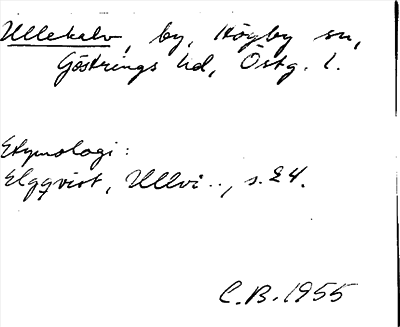 Ullekalv, by, Högby sn,
Göstrings hd, Östg. l.
Etymologi:
Elgqvist, Ullvi.., s. 24.
C.B. 1955